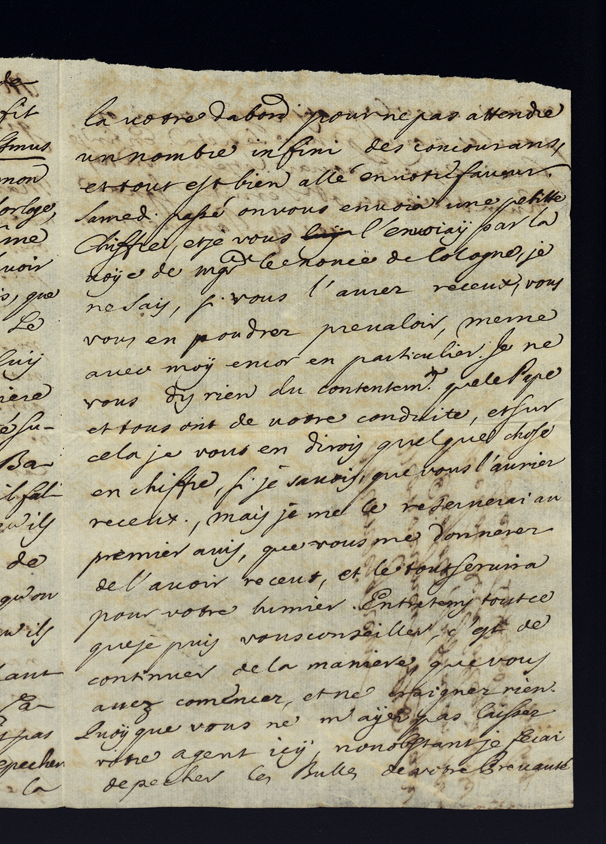 de
fit
non
orloge,
me
uoir
is, que
Le
luy
iere
é su-
Ba-
il fal-
qu'ils
de
qu'on
qu'ils
ant
Pa-
t pas
epecher
la
la votre dabord pour ne pas attendre
un nombre infini des concourans,
et tout est bien allé en votre faveur.
Samedi passé on vous envoia une petitte
Chiffre, et je vous l'envoiay par la
voÿe de mgr le nonce de Cologne, je
ne sais, si vous l'aurez receue, vous
vous en poudrez prevaloir, meme
avec moÿ encor en particulier. Je ne
vous dis rien du contentemt que le Pape
et tous ont de votre conduite, et sur
cela je vous en dirois quelque chose
en chiffre, si je savois, que vous l'aurier
receue, mais je me le reserverai au
premier avis, que vous me donnerer
de l'avoir receue, et le tout servira
pour votre lumier. Entretems tout ce
que je puis vous conseiller, c'est de
continuer de la maniere, que vous
avez comencer, et ne craigner rien.
Quoÿ que vous ne m'aÿez pas laisser
votre agent icÿ, nonobstant je ferai
depecher les Bulles de votre Prevauté